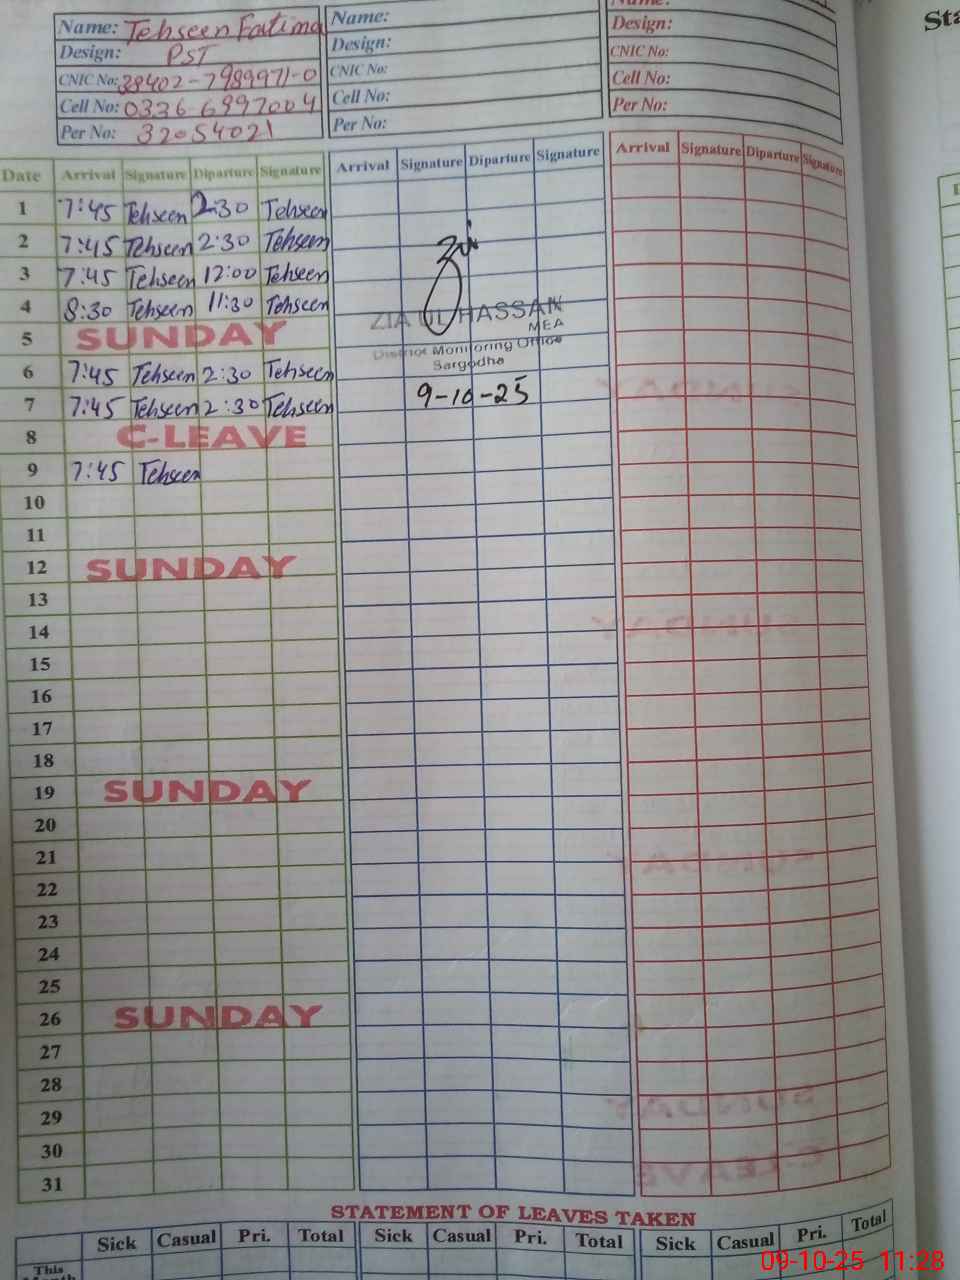 Name: Tehseen Fatima
Design: PST
CNIC No: 38402-7989971-0
Cell No: 0336-6997004
Per No: 32054021
Name:
Design:
CNIC No:
Cell No:
Per No:
Name:
Design:
CNIC No:
Cell No:
Per No:
Sta
Date Arrival Signature Diparture Signature Arrival Signature Diparture Signature Arrival Signature Diparture Signature
1 7:45 Tehseen 2:30 Tehseen
2 7:45 Tehseen 2:30 Tehseen
3 7:45 Tehseen 12:00 Tehseen
4 8:30 Tehseen 11:30 Tehseen
5 SUNDAY
6 7:45 Tehseen 2:30 Tehseen
7 7:45 Tehseen 2:30 Tehseen
8 C-LEAVE
9 7:45 Tehseen
ZIA UL HASSAN
MEA
District Monitoring Office
Sargodha
9-10-25
10
11
12 SUNDAY
13
14
15
16
17
18
19 SUNDAY
20
21
22
23
24
25
26 SUNDAY
27
28
29
30
31
STATEMENT OF LEAVES TAKEN
Sick Casual Pri. Total Sick Casual Pri. Total Sick Casual Pri. Total
This
Month
09-10-25 11:28